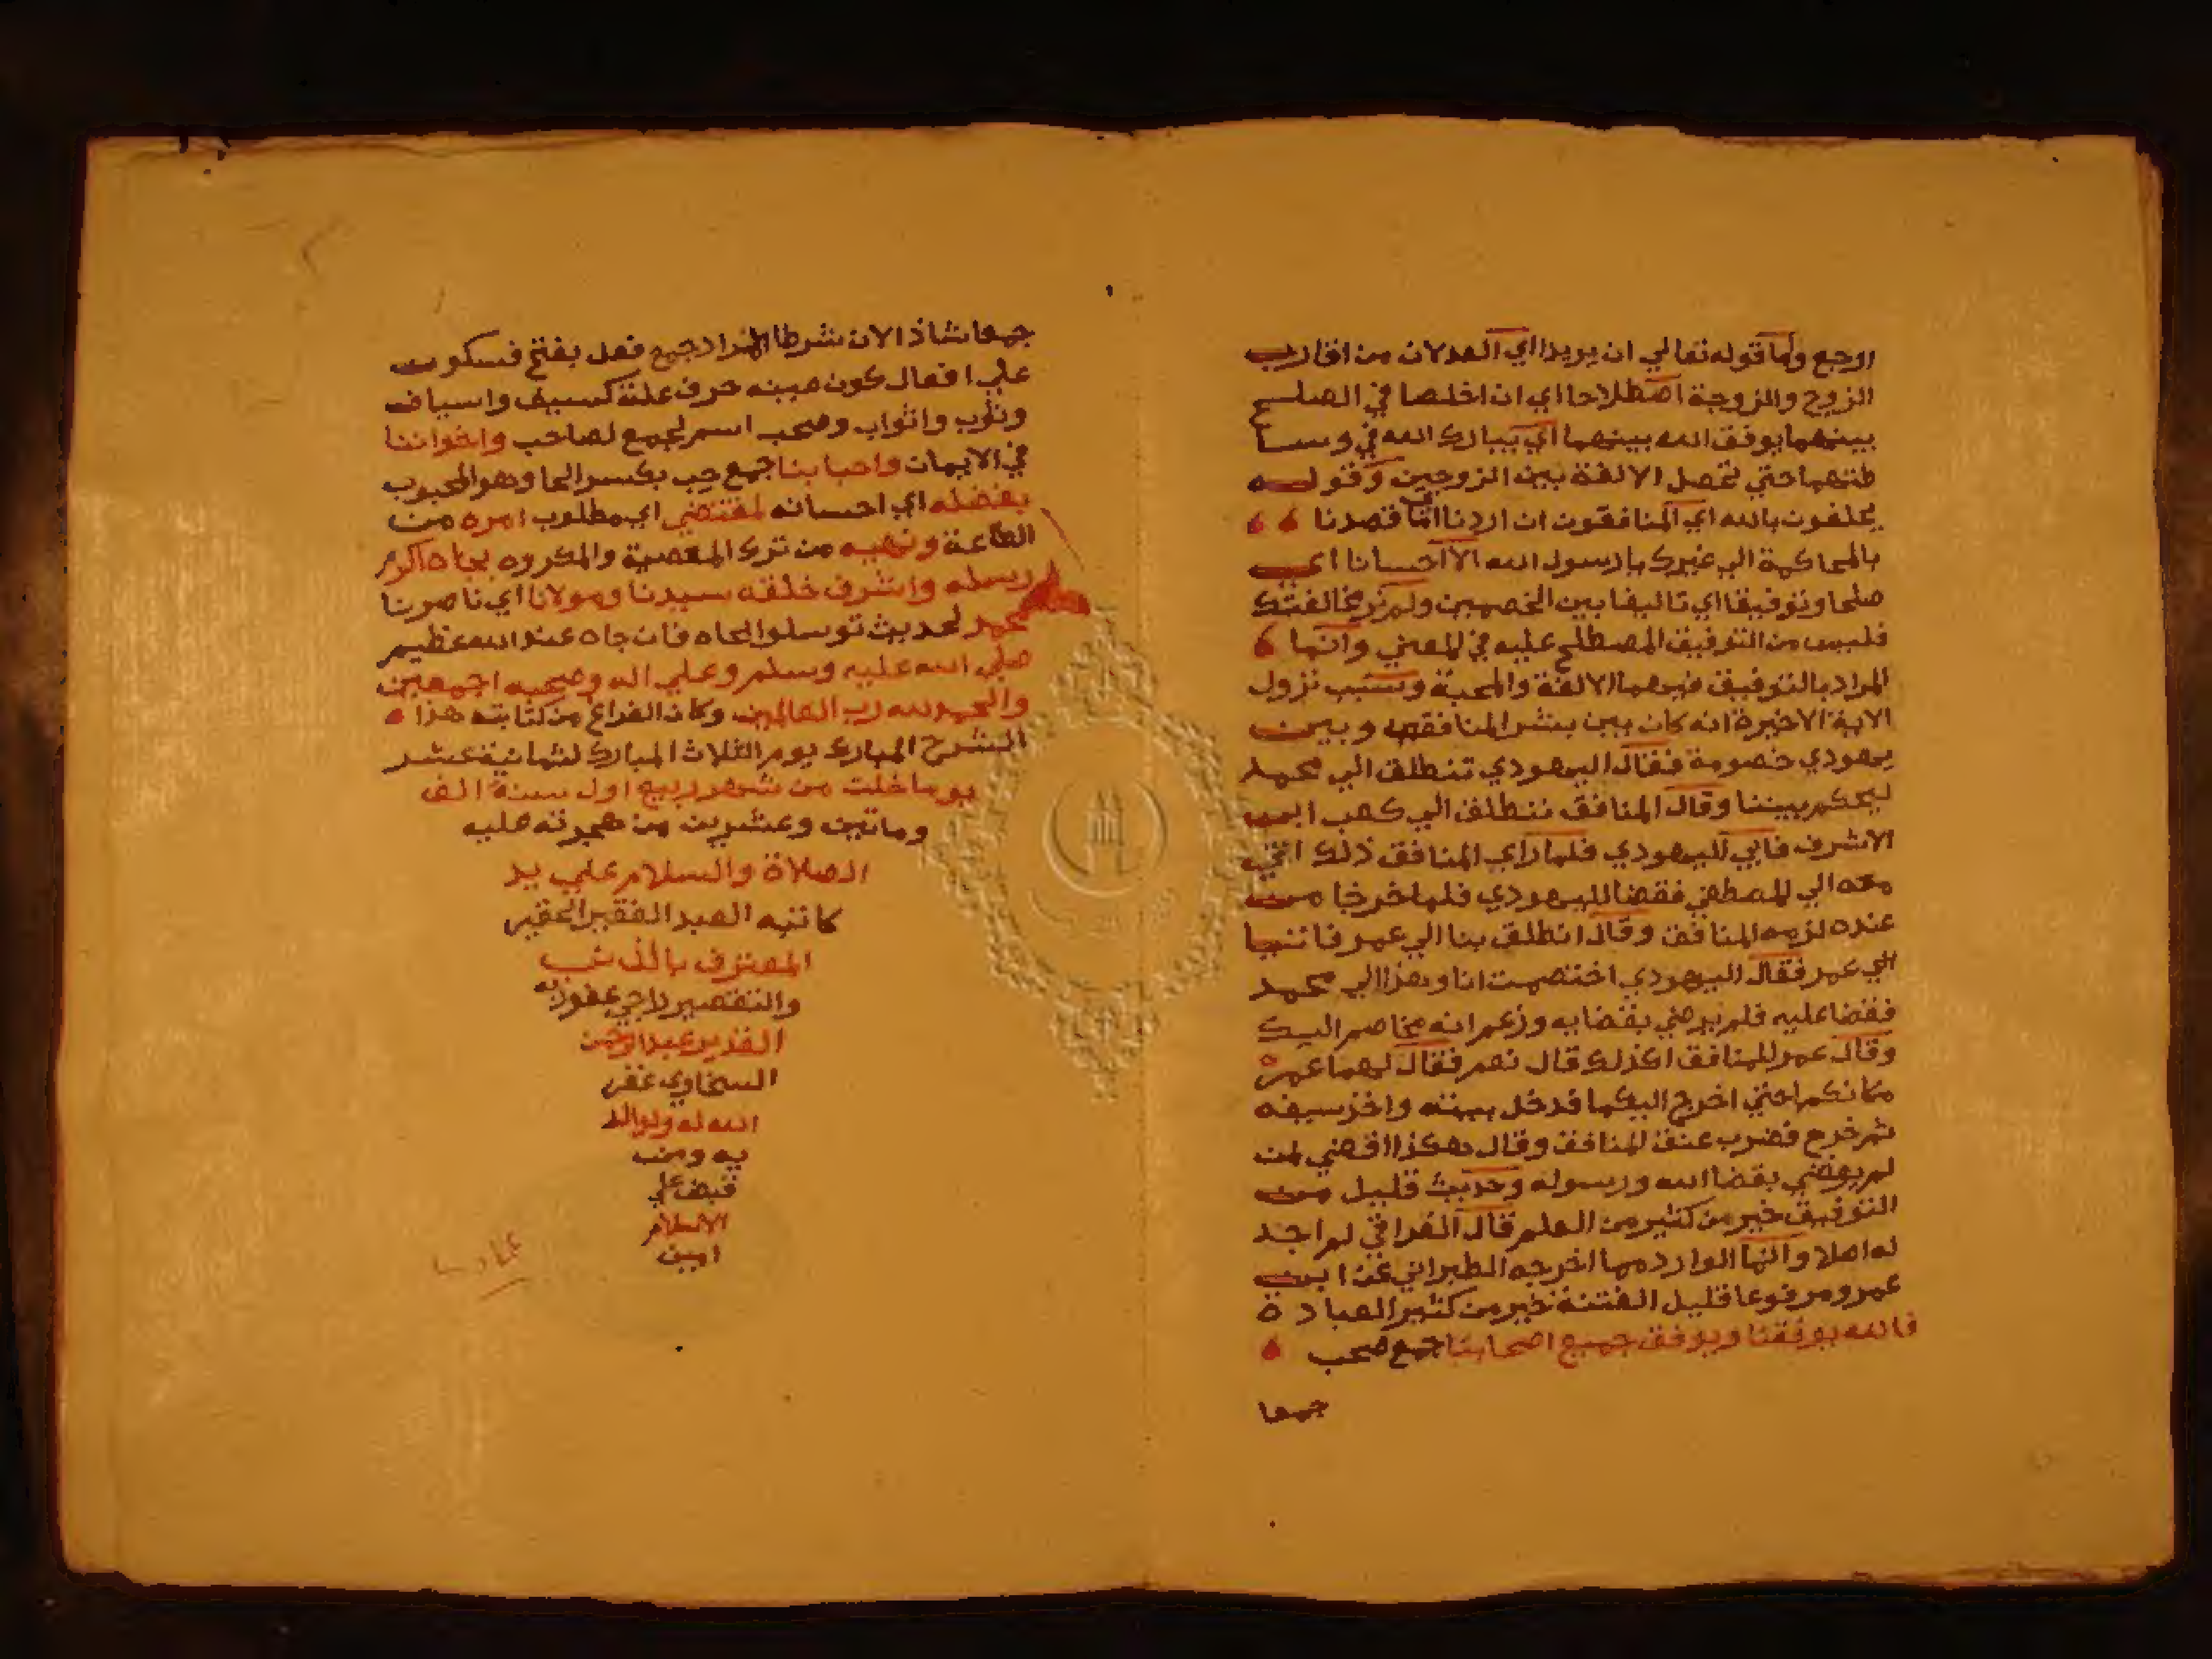 اروجع واما قوله تعالي ان يريدا اي العدلان من اقارب
الزوج والزوجة اصطلاحا اي ان اخلصا في الصلح
بينهما يوفق الله بينهما اي يبارك الله في وسا
طتهما حتي تحصل الالفة بين الزوجين وقوله
يحلفون بالله اي المنافقون ان اردنا اي ما قصدنا
بالمحاكمة الي غيرك يا رسول الله الا احسانا اي
صلحا وتوفيقا اي تاليفا بين الخصمين ولم نرد مخالفتك
فليس من التوفيق المصطلح عليه في المعني وانما
المراد بالتوفيق فيهما الالفة والمحبة وسبب نزول
الاية الاخيرة انه كان بين بشر المنافق وبين
يهودي خصومة فقال اليهودي تنطلق الي محمد
ليحكم بيننا وقال المنافق ننطلق الي كعب ابن
الاشرف فابي اليهودي فلما راي المنافق ذلك اتي
معه الي المصطفي فقضا لليهودي فلما خرجا من
عنده لزمه المنافق وقال انطلق بنا الي عمر فاتيا
الي عمر فقال اليهودي اختصمت انا وهذا الي محمد
فقضا عليه فلم يرضي بقضايه وزعم انه مخاصم اليك
وقال عمر للمنافق اكذلك قال نعم فقال لهما عمر
مكانكما حتي اخرج اليكما فدخل بيته واخذ سيفه
ثم خرج فضرب عنق المنافق وقال هكذا اقضي لمن
لم يرضي بقضا الله ورسوله وحديث قليل من
التوفيق خير من كثير من العلم قال العراقي لم اجد
له اصلا وانما الوارد مما اخرجه الطبراني عن ابن
عمرو مرفوعا قليل الفتنة خير من كثير العبادة
فالله يوفقنا ويوفق جميع اصحابنا جمع صحب
جمعا
جمعا شاذا لان شرط المراد جمع فعل بفتح فسكون
علي افعال كون عينه حرف علة كسيف واسياف
وثوب واثواب وصحب اسم لجمع لصاحب واخواننا
في الايمان واحبابنا جمع حب بكسر الحا وهو المحبوب
بفضله اي احسانه لمقتضي اي مطلوب امره من
الطاعة ونهيه من ترك المعصية والمكروه بجاه اكرم
رسله واشرف خلقه سيدنا ومولانا اي ناصرنا
محمد لحديث توسلوا بجاه فان جاه عند الله عظيم
صلي الله عليه وسلم وعلي اله وصحبه اجمعين
والحمد لله رب العالمين وكان الفراغ من كتابته هذا
الشرح المبارك يوم الثلاث المبارك لثمانية عشر
يوما خلت من شهر ربيع اول سنة الف
وماتين وعشرين من هجرته عليه
الصلاة والسلام علي يد
كاتبه العبد الفقير الحقير
المعترف بالذنب
والتقصير راجي عفو ربه
القدير عبد الرحمن
السخاوي غفر
الله له ولوالد
يه ومن
قبض علي
الاسلام
امين